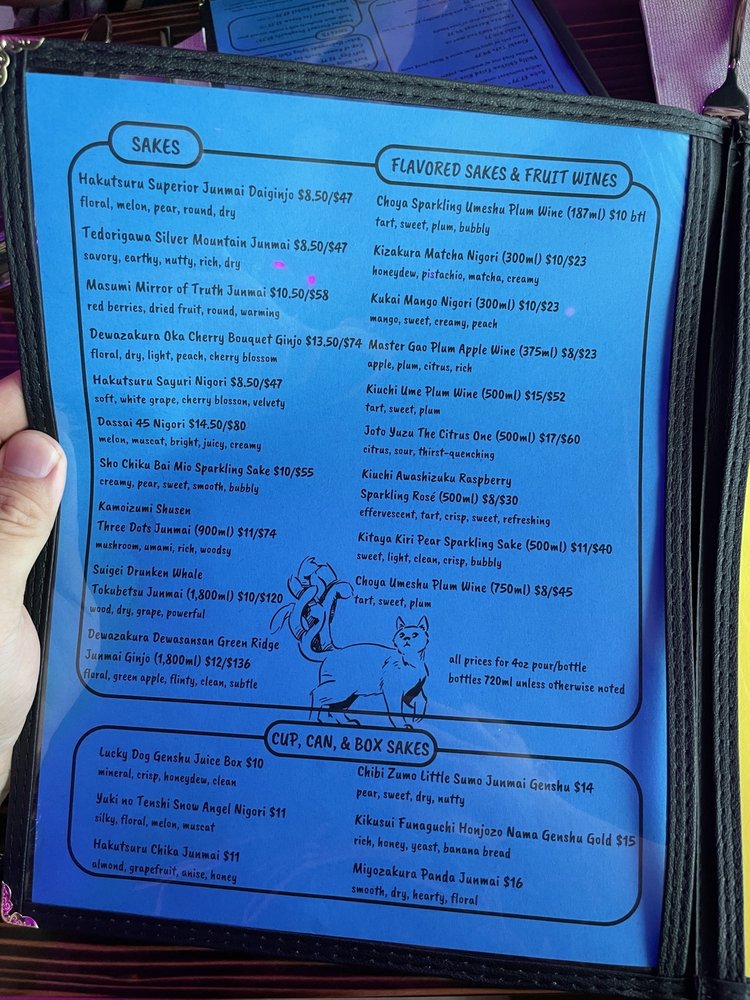 SAKES
Hakutsuru Superior Junmai Daiginjo $8.50/$47
floral, melon, pear, round, dry
Tedorigawa Silver Mountain Junmai $8.50/$47
savory, earthy, nutty, rich, dry
Masumi Mirror of Truth Junmai $10.50/$58
red berries, dried fruit, round, warming
Dewazakura Oka Cherry Bouquet Ginjo $13.50/$74
floral, dry, light, peach, cherry blossom
Hakutsuru Sayuri Nigori $8.50/$47
soft, white grape, cherry blosson, velvety
Dassai 45 Nigori $14.50/$80
melon, muscat, bright, juicy, creamy
Sho Chiku Bai Mio Sparkling Sake $10/$55
creamy, pear, sweet, smooth, bubbly
Kamoizumi Shusen
Three Dots Junmai (900ml) $11/$74
mushroom, umami, rich, woodsy
Suigei Drunken Whale
Tokubetsu Junmai (1,800ml) $10/$120
wood, dry, grape, powerful
Dewazakura Dewasansan Green Ridge
Junmai Ginjo (1,800ml) $12/$136
floral, green apple, flinty, clean, subtle
FLAVORED SAKES & FRUIT WINES
Choya Sparkling Umeshu Plum Wine (187ml) $10 btl
tart, sweet, plum, bubbly
Kizakura Matcha Nigori (300ml) $10/$23
honeydew, pistachio, matcha, creamy
Kukai Mango Nigori (300ml) $10/$23
mango, sweet, creamy, peach
Master Gao Plum Apple Wine (375ml) $8/$23
apple, plum, citrus, rich
Kiuchi Ume Plum Wine (500ml) $15/$52
tart, sweet, plum
Joto Yuzu The Citrus One (500ml) $17/$60
citrus, sour, thirst-quenching
Kiuchi Awashizuku Raspberry
Sparkling Rosé (500ml) $8/$30
effervescent, tart, crisp, sweet, refreshing
Kitaya Kiri Pear Sparkling Sake (500ml) $11/$40
sweet, light, clean, crisp, bubbly
Choya Umeshu Plum Wine (750ml) $8/$45
tart, sweet, plum
all prices for 4oz pour/bottle
bottles 720ml unless otherwise noted
CUP, CAN, & BOX SAKES
Lucky Dog Genshu Juice Box $10
mineral, crisp, honeydew, clean
Yuki no Tenshi Snow Angel Nigori $11
silky, floral, melon, muscat
Hakutsuru Chika Junmai $11
almond, grapefruit, anise, honey
Chibi Zumo Little Sumo Junmai Genshu $14
pear, sweet, dry, nutty
Kikusui Funaguchi Honjozo Nama Genshu Gold $15
rich, honey, yeast, banana bread
Miyozakura Panda Junmai $16
smooth, dry, hearty, floral